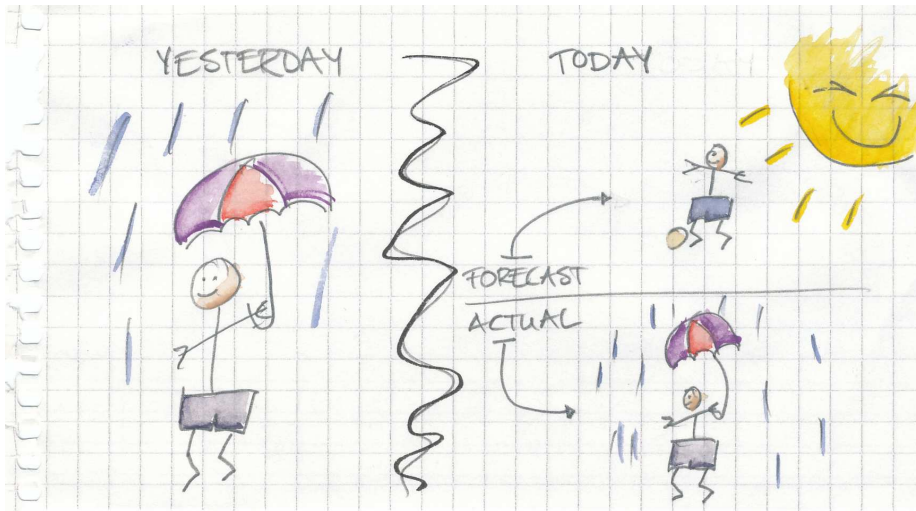 YESTERDAY
TODAY
FORECAST
ACTUAL